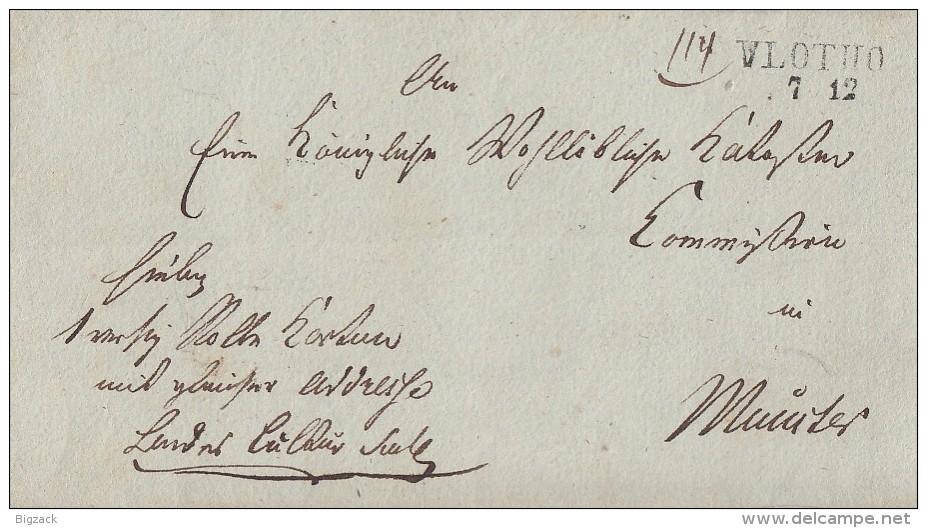 114
VLOTHO
7 12
An
Eine Königliche Wohllöbliche Kataster
Commission
in
Münster
Hiebey
1 versig Rolle Karten
mit gleicher Addresse
Landes Cultur Sache
Bigzack
www.delcampe.net